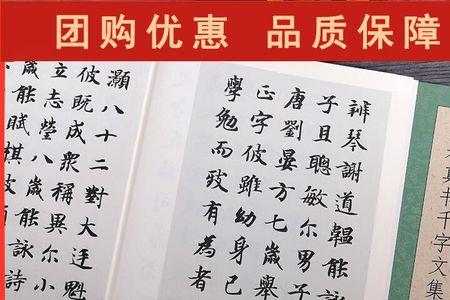 团购优惠 品质保障
辨琴謝道韞能詠
子且聰敏尔男子
唐劉晏方七歲舉
正字彼雖幼身已
學勉而致有為者
灝八十二對大廷魁
彼既成衆稱異尔小
立志瑩八歲能詠詩
歲能賦棋彼
真书千字文集